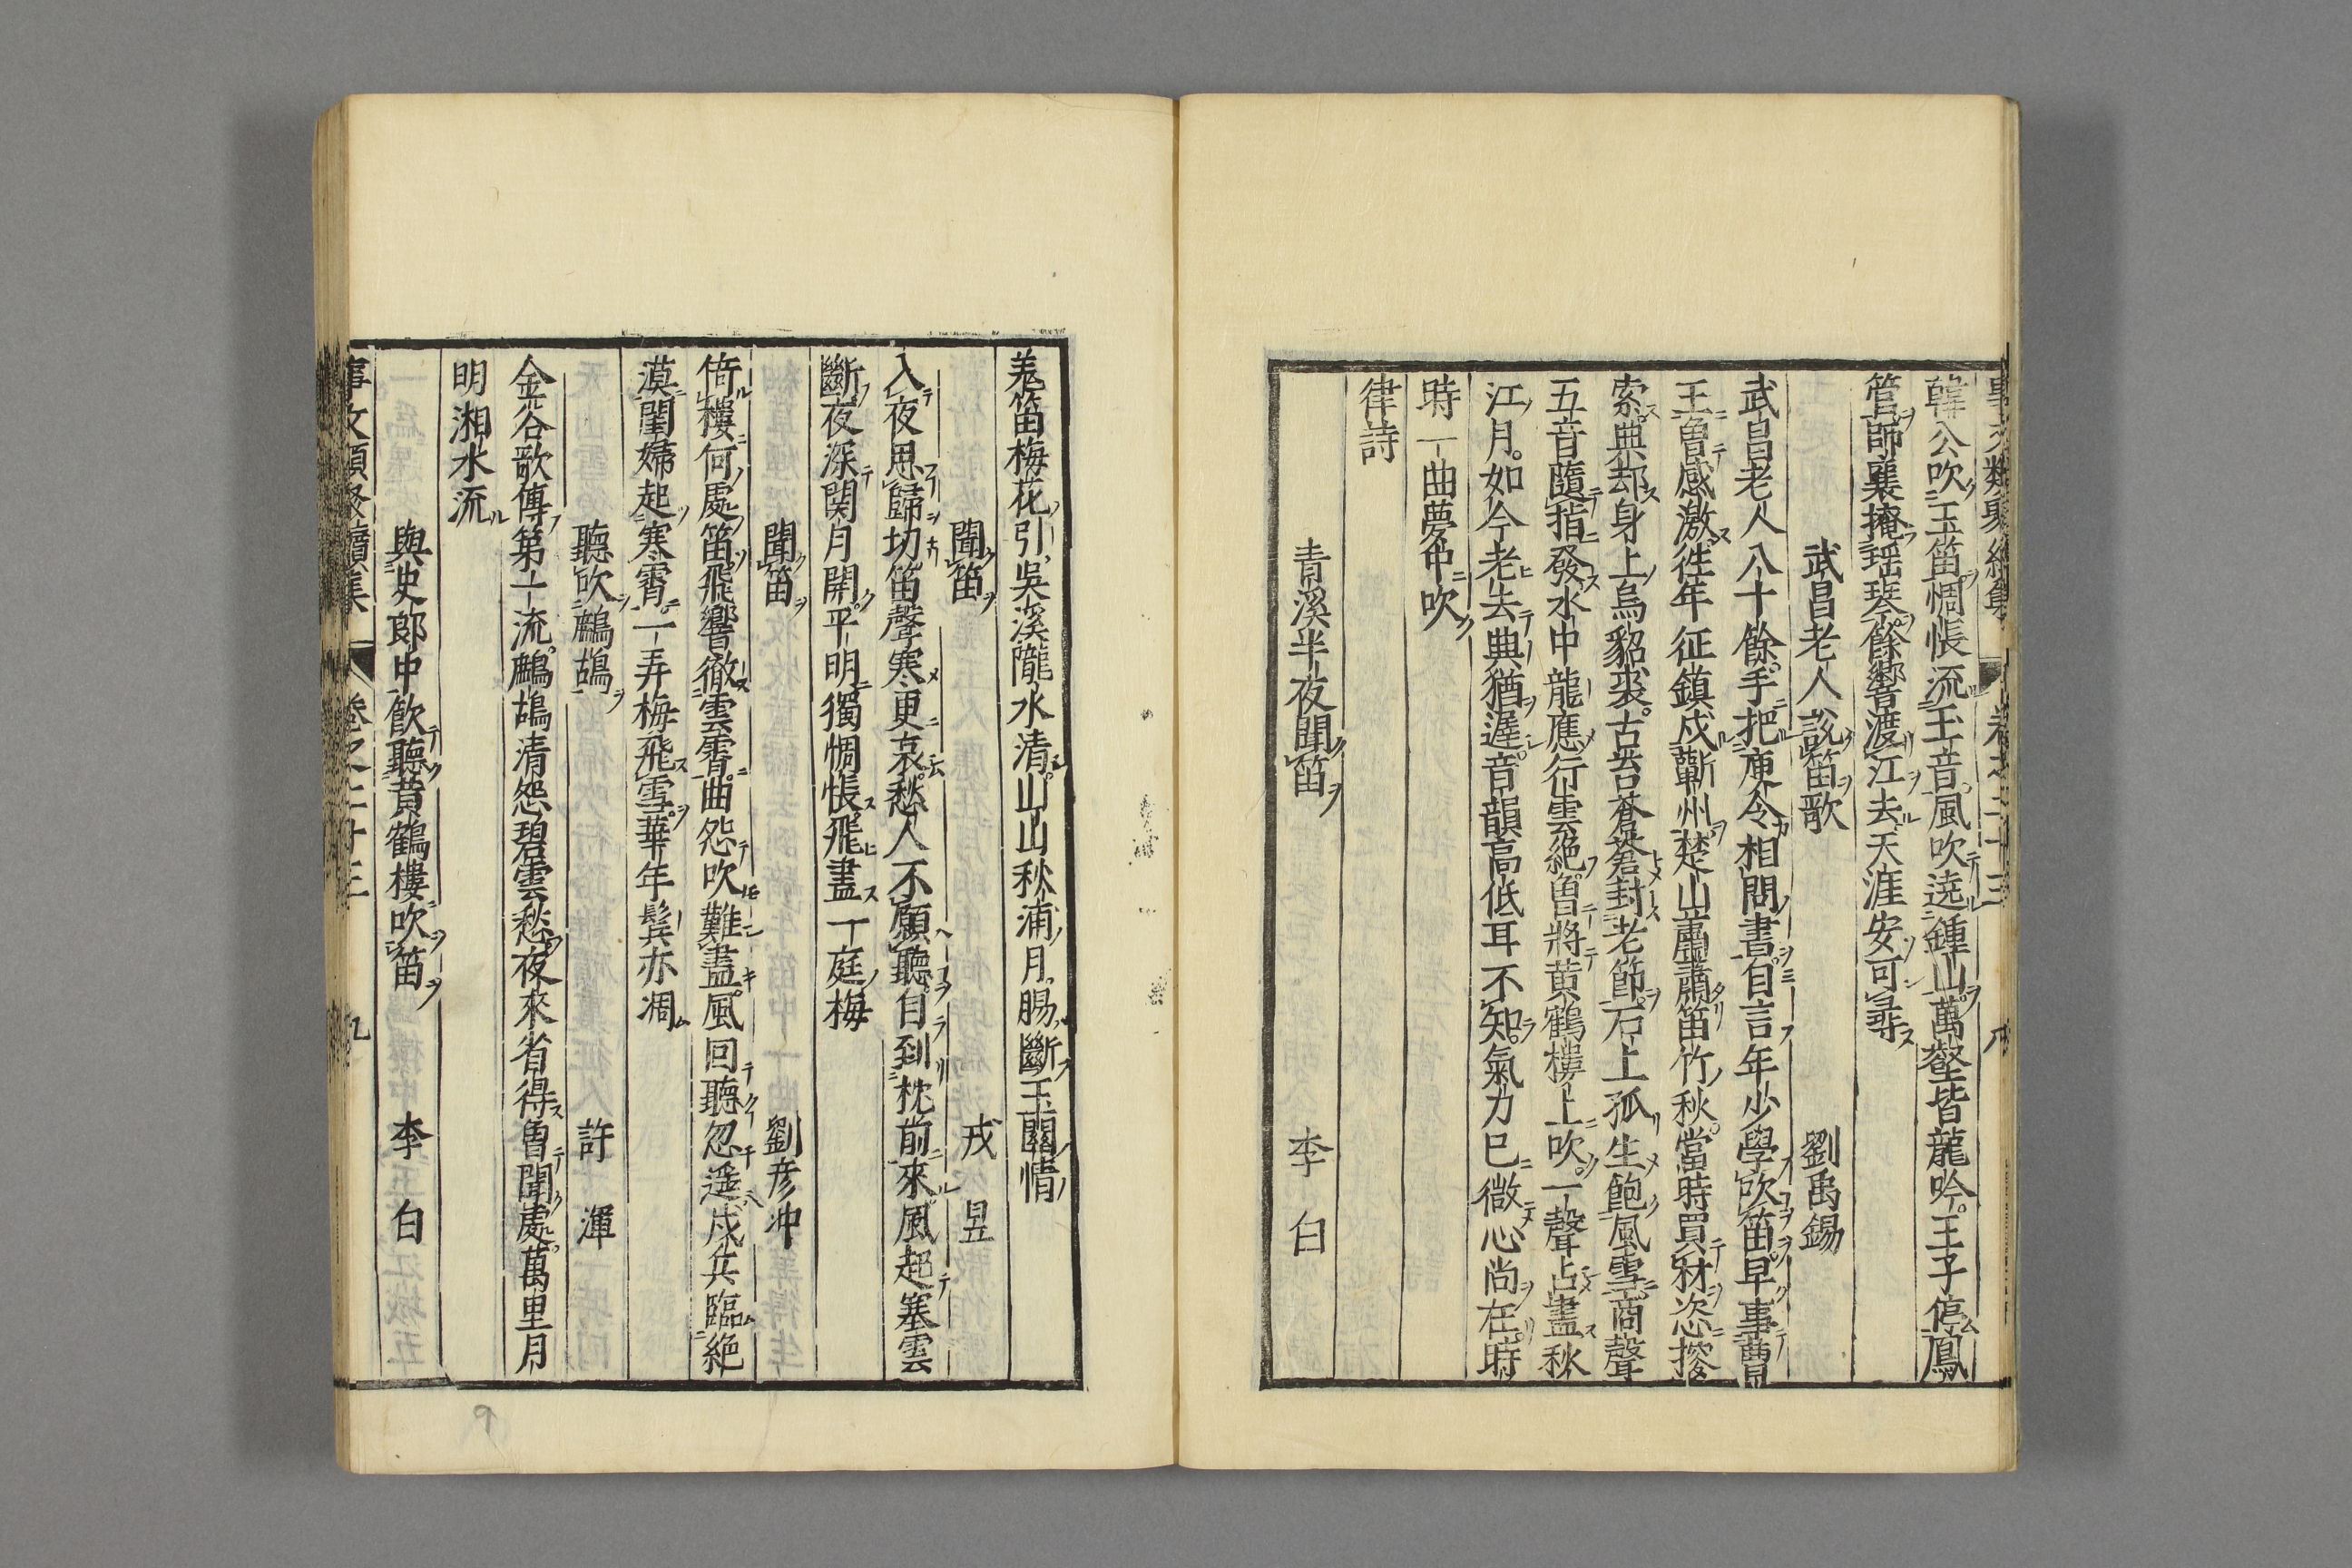 事文類聚續集 卷之二十三 八
韓公吹玉笛惆悵流玉音風吹遶鍾山萬壑皆龍吟王子停鳳
管師襄掩瑶琴餘響渡江去天涯安可尋
武昌老人說笛歌 劉禹錫
武昌老人八十餘手把庾令相問書自言年少學吹笛早事曹
王曽感激徃年征鎮戍蘄州楚山蕭蕭笛竹秋當時買材恣搜
索典却身上烏貂裘古苔蒼蒼封老節石上孤生飽風雪商聲
五音隨指發水中龍應行雲絕曽將黄鶴樓上吹一聲占盡秋
江月如今老去典猶遲音韻高低耳不知氣力已微心尚在時
時一曲夢中吹
律詩
青溪半夜聞笛 李白
羌笛梅花引吳溪隴水清山山秋浦月腸斷玉關情
聞笛 戎昱
入夜思歸切笛聲寒更哀愁人不願聽自到枕前來風起塞雲
斷夜深関月開平明獨惆悵飛盡一庭梅
聞笛 劉彦冲
倚樓何處笛飛響徹雲霄曲怨吹難盡風回聽忽遥戍兵臨絶
漠閨婦起寒霄一弄梅飛雪華年鬂亦凋
聽吹鷓鴣 許渾
金谷歌傳第一流鷓鴣清怨碧雲愁夜來省得曽聞處萬里月
明湘水流
與史郎中飲聽黄鶴樓吹笛 李白
事文類聚續集 卷之二十三 九